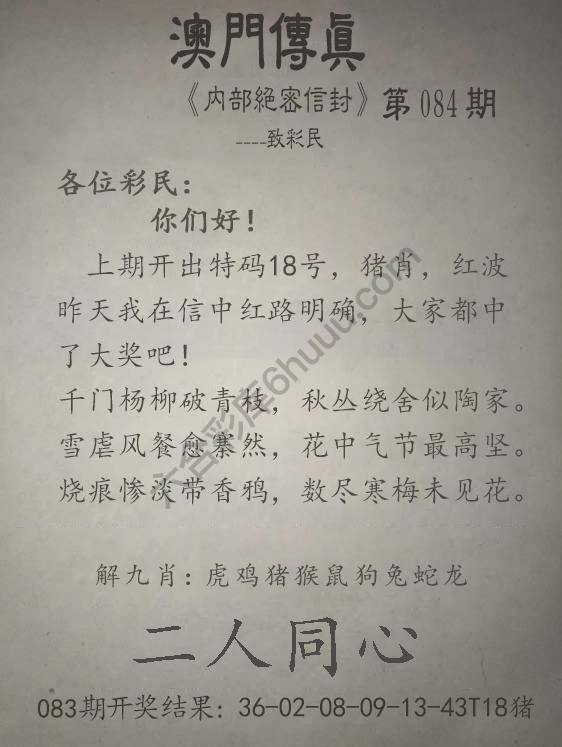 澳門傳眞
《内部絕密信封》第084期
----致彩民
各位彩民：
你们好！
上期开出特码18号，猪肖，红波
昨天我在信中红路明确，大家都中
了大奖吧！
千门杨柳破青枝，秋丛绕舍似陶家。
雪虐风餐愈寨然，花中气节最高坚。
烧痕惨淡带香鸦，数尽寒梅未见花。
六合彩库6huuu.com
解九肖：虎鸡猪猴鼠狗兔蛇龙
二人同心
083期开奖结果：36-02-08-09-13-43T18猪